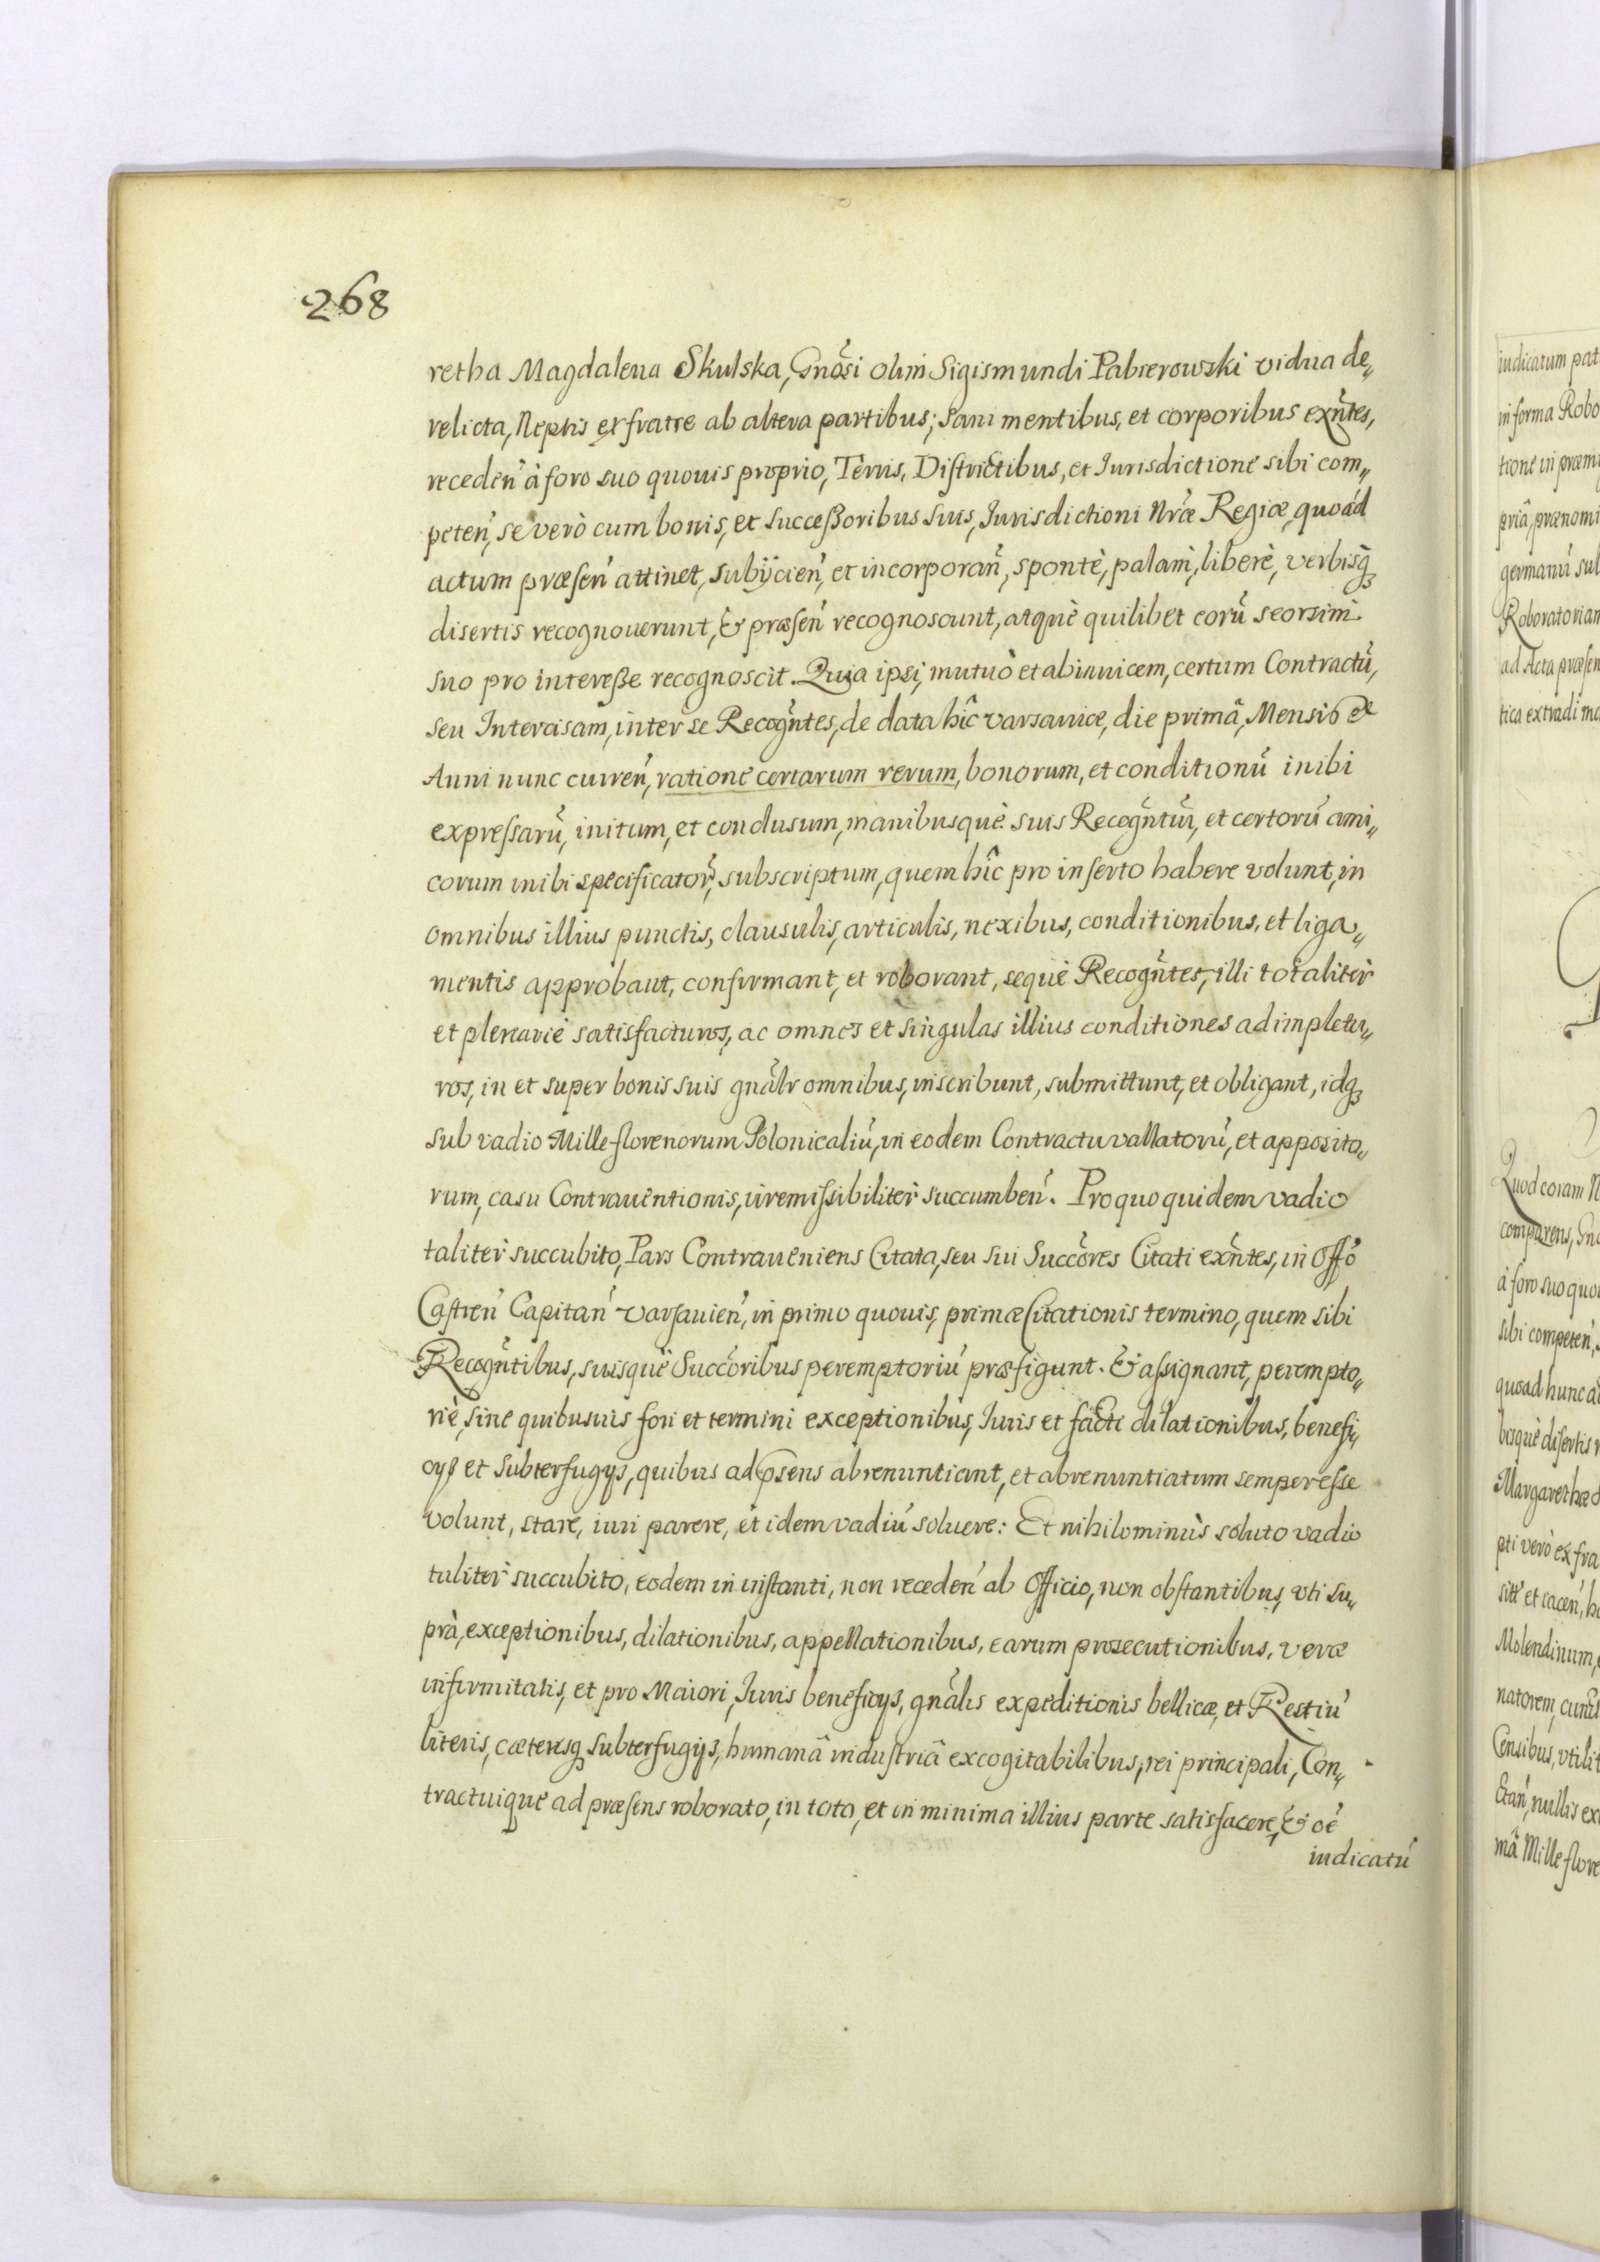 268
retha Magdalena Skulska, Gnôsi olim Sigismundi Pabierowski vidua de„
relicta, Neptis ex fratre ab altera partibus; sani mentibus, et corporibus exñtes,
receden̄ à foro suo quouis proprio, Terris, Districtibus, et Jurisdictione sibi com„
peten̄, se verò cum bonis, et successoribus suis, Jurisdictioni Nræ Regiæ, quoad
actum præsen̄ attinet, subÿcien̄, et incorporan̄, spontè, palam, liberè, verbisq
disertis recognouerunt, & præsen̄ recognoscunt, atquè quilibet eorū seorsim
suo pro interesse recognoscit. Quia ipsi, mutuò et abinuicem, certum Contractū,
seu Intercisam, inter se Recogñtes, de data hîc varsaviæ, die primâ, Mensis et
Anni nunc curren̄, ratione certarum rerum, bonorum, et conditionū inibi
expressarū, initum, et conclusum, manibusquè suis Recogñtiū, et certorū ami„
corum inibi specificator̄, subscriptum, quem hîc pro inserto habere volunt, in
omnibus illius punctis, clausulis, articulis, nexibus, conditionibus, et liga„
mentis approbant, confirmant, et roborant, sequè Recogñtes, illi totaliter
et plenariè satisfacturos, ac omnes et singulas illius conditiones adimpletu„
ros, in et super bonis suis gnâlr omnibus, inscribunt, submittunt, et obligant, idq
sub vadio Mille florenorum Polonicaliū, in eodem Contractu vallatorū, et apposito„
rum, casu Contrauentionis, irremissibiliter succumben̄. Pro quo quidem vadio
taliter succubito, Pars Contraueniens Citata, seu sui Succôres Citati exñtes, in Offō
Castren̄ Capitan̄ Varsauien̄, in primo quouis, primæ Citationis termino, quem sibi
Recogñtibus, suisquè Succôribus peremptoriū præfigunt. & assignant, perempto„
riè, sine quibusuis fori et termini exceptionibus, Juris et facti dilationibus, benefi„
cÿs et subterfugÿs, quibus ad psens abrenuntiant, et abrenuntiatum semper esse
volunt, stare, iuri parere, et idem vadiū soluere: Et nihilominùs soluto vadio
taliter succubito, eodem in instanti, non receden̄ ab Officio, non obstantibus, vti su„
prà, exceptionibus, dilationibus, appellationibus, earum prosecutionibus, veræ
infirmitatis, et pro Maiori, Juris beneficÿs, gnâlis expeditionis bellicæ, et Restiū
literis, cæterisq subterfugÿs, humanâ industriâ excogitabilibus, rei principali, Con„
tractuiquè ad præsens roborato, in toto, et in minima illius parte satisfacere, & oē
iudicatū
iudicatum pat
in forma Robo
tione in præmi
priâ, prænomi
germanū sul
Roboratoriam
ad Acta præsen
tica extradi ma
Quod coram N
comparens, Gn
à foro suo quo
sibi competen̄,
quoad hunc a
bisquè disertis r
Margarethæ
pti verò ex fra
Molendinum,
natorem, cum
Censibus, vtilit
nullis ex
mâ Mille flore